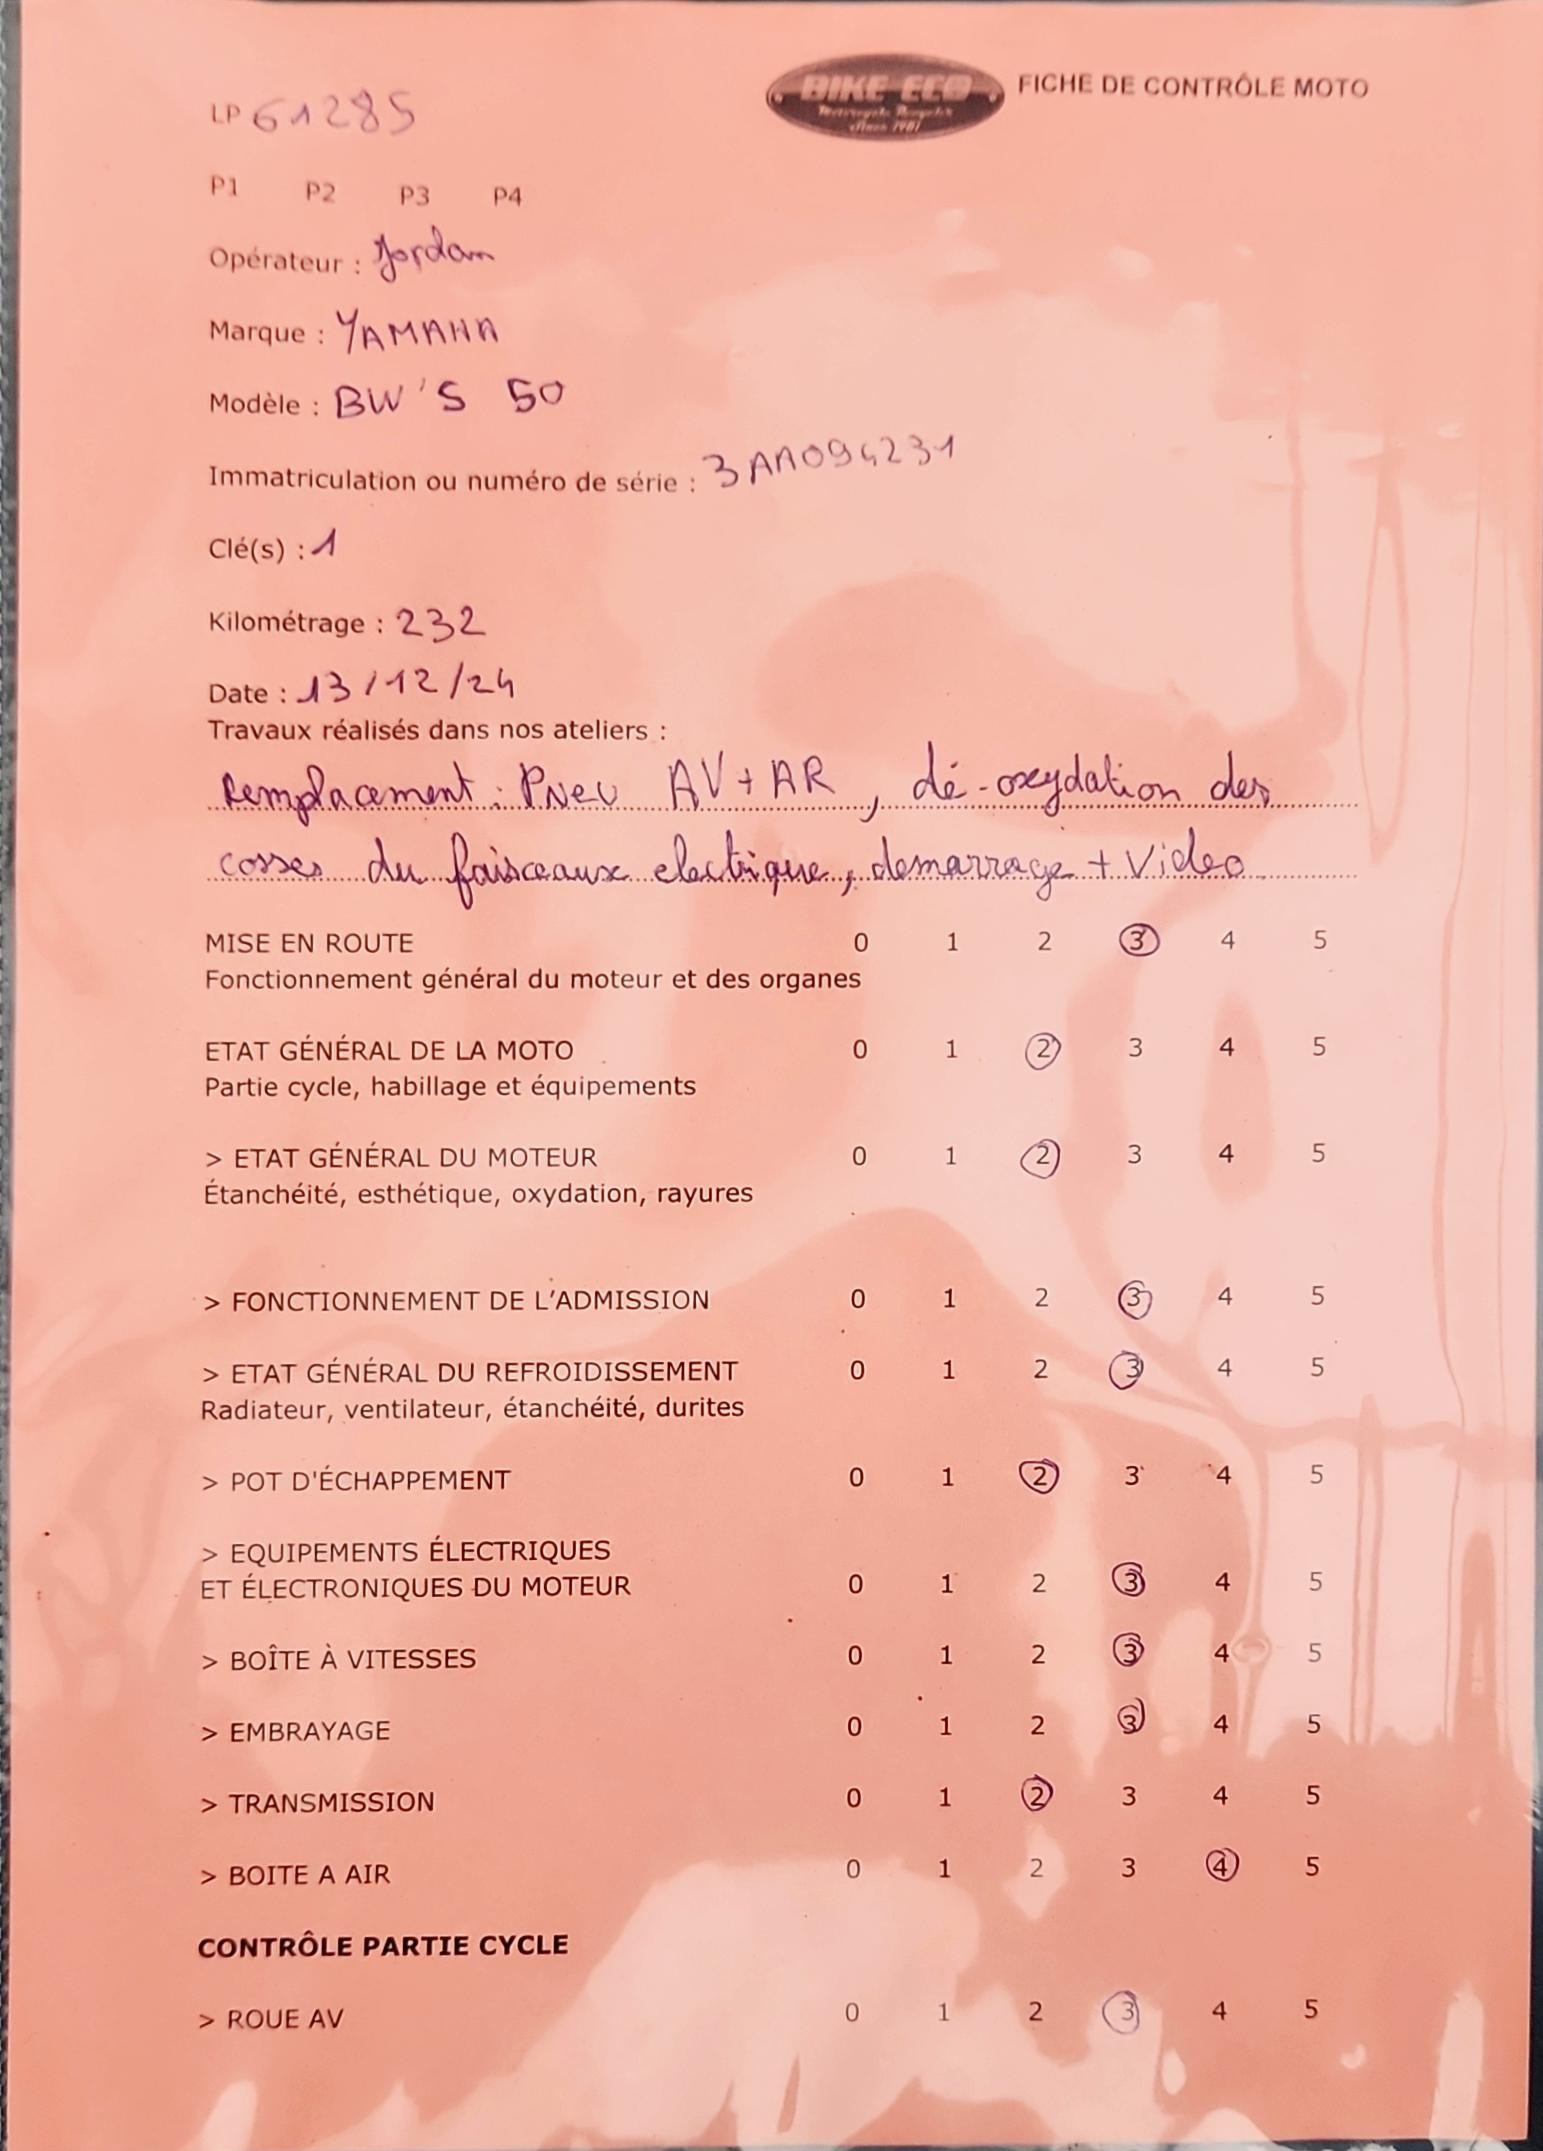 LP 61285
BIKE-ECO
Motorcycle Recycler
since 1981
FICHE DE CONTRÔLE MOTO
P1 P2 P3 P4
Opérateur : Jordan
Marque : YAMAHA
Modèle : BW'S 50
Immatriculation ou numéro de série : 3AA094231
Clé(s) : 1
Kilométrage : 232
Date : 13/12/24
Travaux réalisés dans nos ateliers :
Remplacement : Pneu AV+AR, dé-oxydation des
cosses du faisceaux electrique, demarrage + Video
MISE EN ROUTE 0 1 2 3 4 5
Fonctionnement général du moteur et des organes
ETAT GÉNÉRAL DE LA MOTO 0 1 2 3 4 5
Partie cycle, habillage et équipements
> ETAT GÉNÉRAL DU MOTEUR 0 1 2 3 4 5
Étanchéité, esthétique, oxydation, rayures
> FONCTIONNEMENT DE L'ADMISSION 0 1 2 3 4 5
> ETAT GÉNÉRAL DU REFROIDISSEMENT 0 1 2 3 4 5
Radiateur, ventilateur, étanchéité, durites
> POT D'ÉCHAPPEMENT 0 1 2 3 4 5
> EQUIPEMENTS ÉLECTRIQUES
ET ÉLECTRONIQUES DU MOTEUR 0 1 2 3 4 5
> BOÎTE À VITESSES 0 1 2 3 4 5
> EMBRAYAGE 0 1 2 3 4 5
> TRANSMISSION 0 1 2 3 4 5
> BOITE A AIR 0 1 2 3 4 5
CONTRÔLE PARTIE CYCLE
> ROUE AV 0 1 2 3 4 5